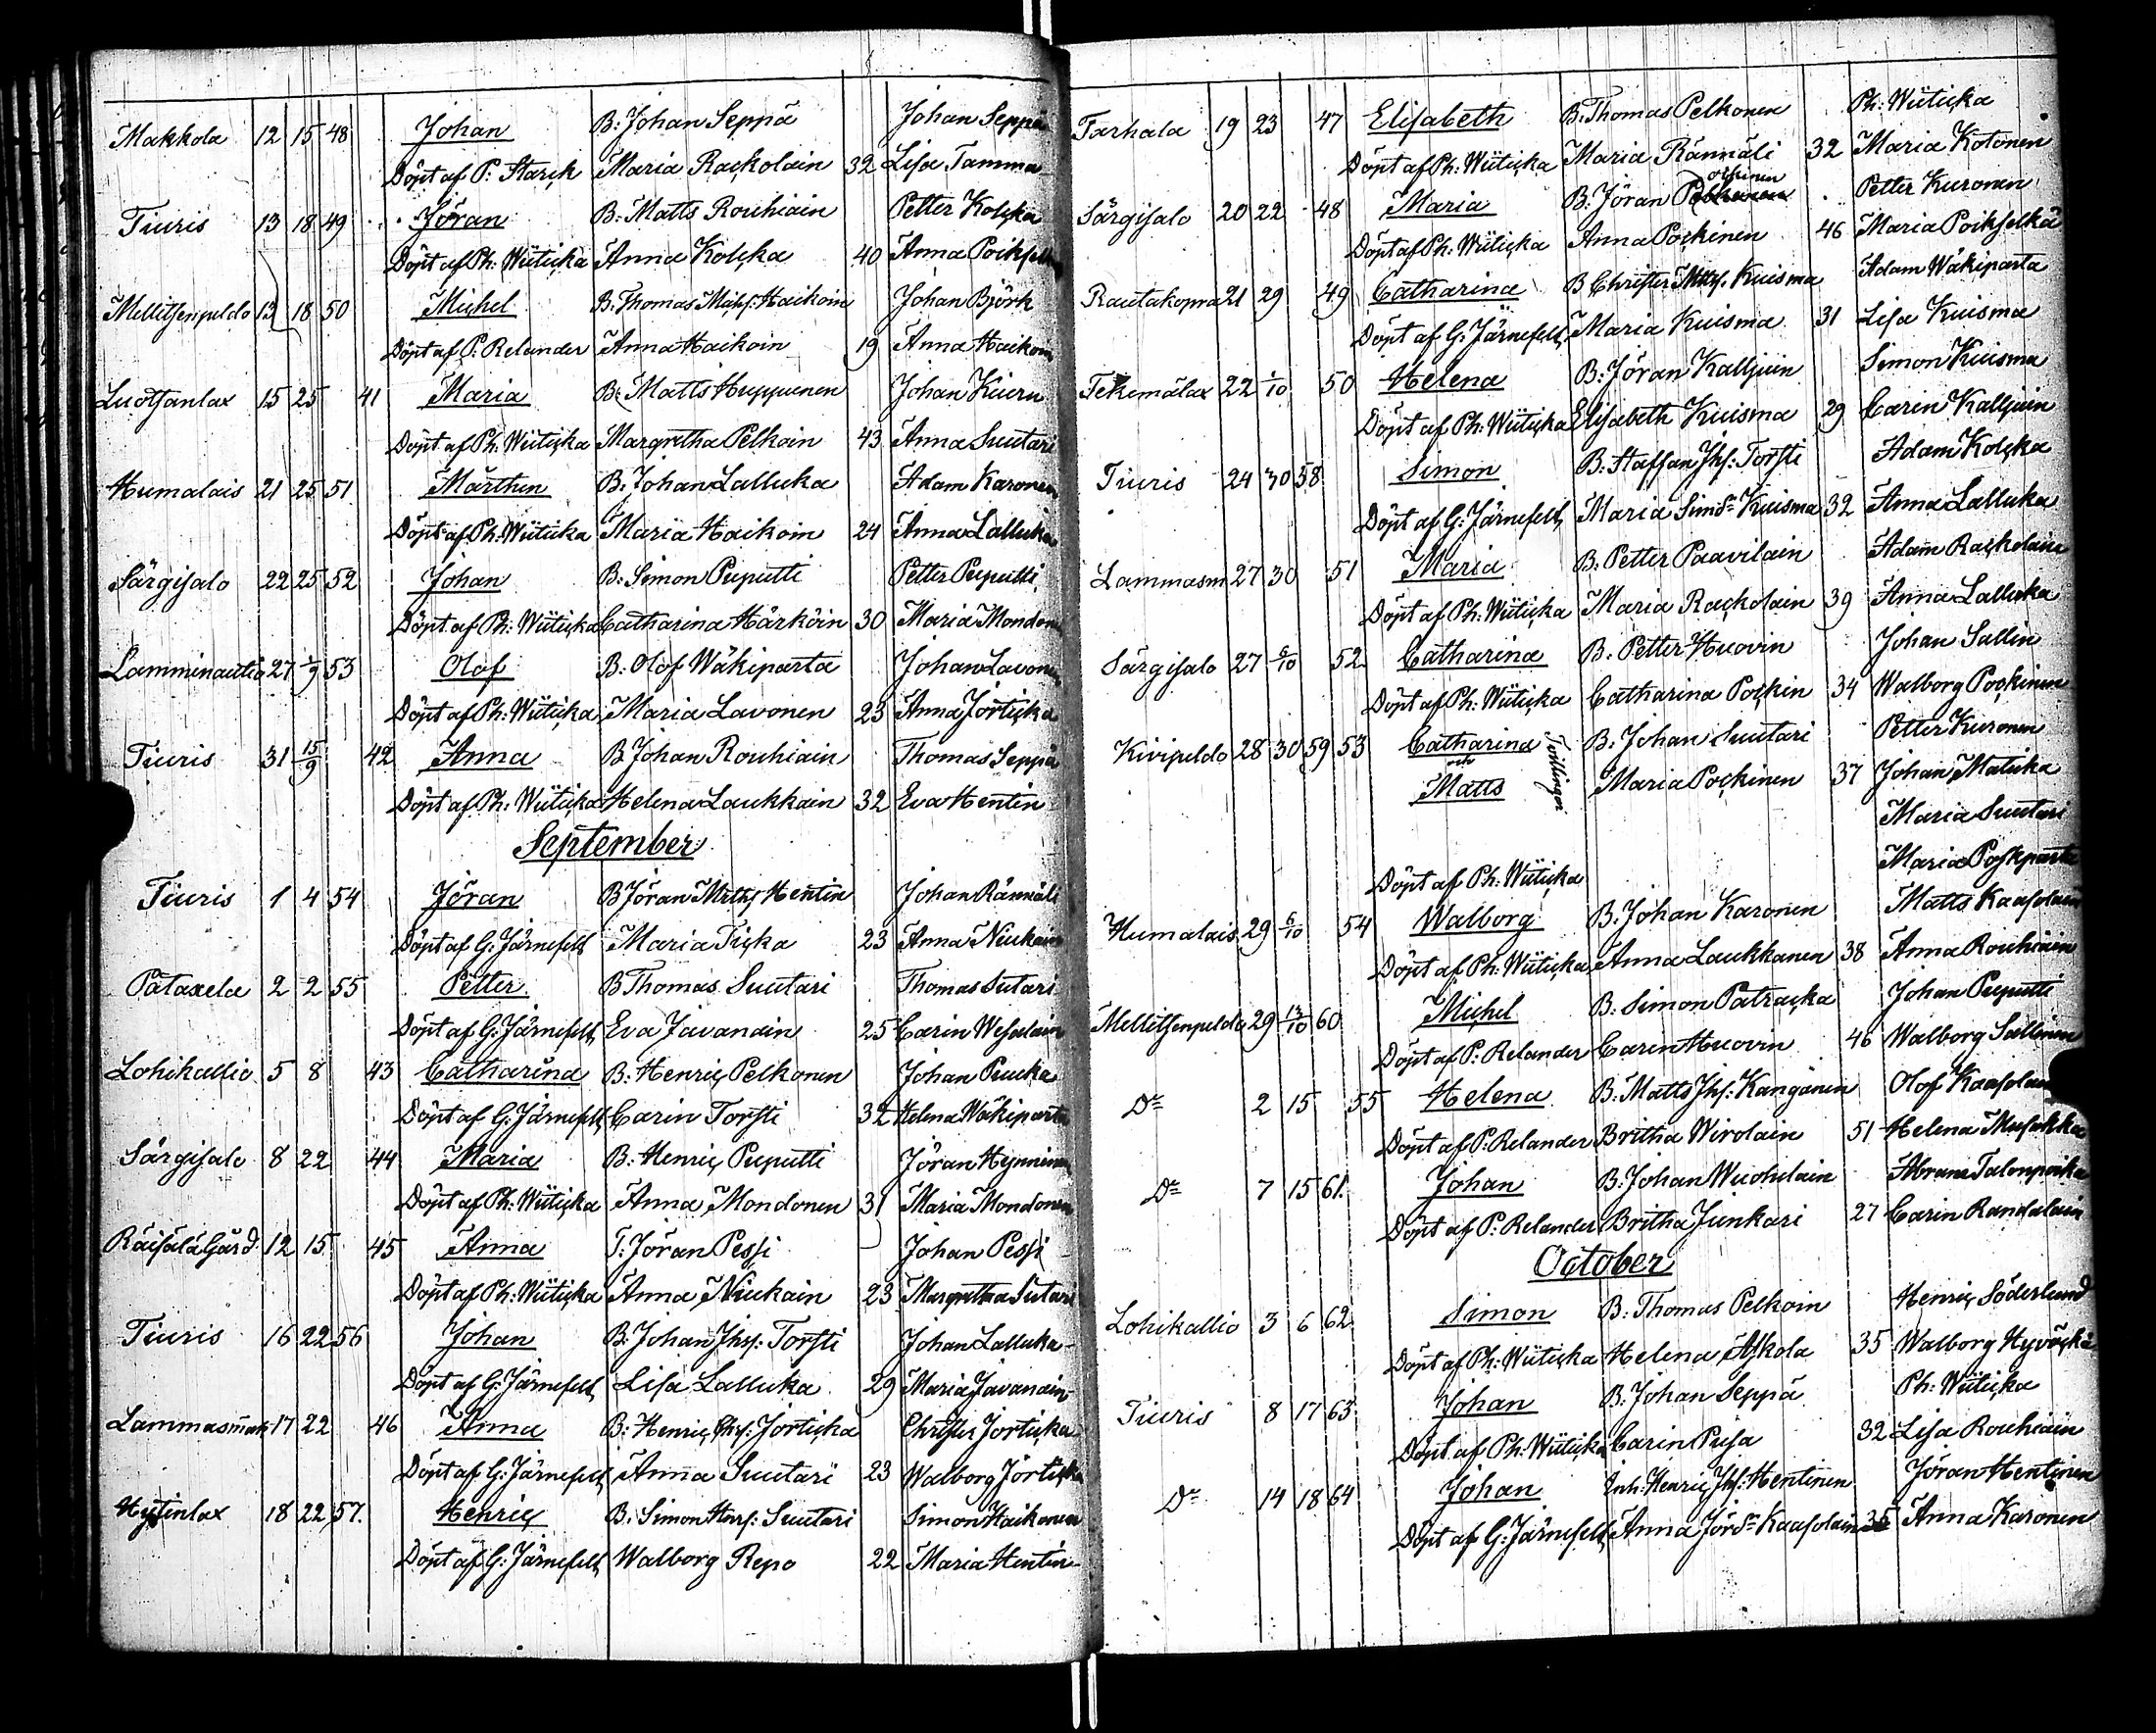 Makkola 12 15 48 Johan B. Johan Seppä Johan Seppä
Döpt af P. Starck Maria Rackolain 32 Lisa Tamma
Tiuris 13 18 49 Jöran B. Matts Rouhiain Petter Kolcka
Döpt af Ph: Wiiticka Anna Kolcka 40 Anna Poikselk
Mellitsenpeldo 13 18 50 Michel B. Thomas Haikoin Johan Björk
Döpt af P: Relander Anna Haikoin 19 Anna Haikoin
Luotsanlax 15 25 41 Maria B: Matts Huppunen Johan Kiuru
Döpt af Ph: Wiiticka Margretha Pelkoin 43 Anna Suutari
Humalais 21 25 51 Mårthen B. Johan Lalluka Adam Karonen
Döpt af Ph: Wiiticka Maria Haikoin 24 Anna Lalluka
Särgisalo 22 25 52 Johan B. Simon Puputti Petter Puputti
Döpt af Ph: Wiiticka Catharina Härköin 30 Maria Mondonen
Lamminautio 27 1/9 53 Olof B. Olof Wäkiparta Johan Lavonen
Döpt af Ph: Wiiticka Maria Lavonen 23 Anna Jörticka
Tiuris 31 15/9 42 Anna B Johan Rouhiain Thomas Seppä
Döpt af Ph: Wiiticka Helena Laukkain 32 Eva Hentin
September
Tiuris 1 4 54 Jöran B Jöran Mtts Hentin Johan Rännäli
Döpt af G: Järnefelt Maria Ticka 23 Anna Niukain
Pataxela 2 2 55 Petter B Thomas Suutari Thomas Sutari
Döpt af G: Järnefelt Eva Javanain 25 Carin Wesalain
Lohikallio 5 8 43 Catharina B. Henric Pelkonen Johan Puuka
Döpt af G: Järnefelt Carin Torsti 32 Helena Wäkiparta
Särgisalo 8 22 44 Maria B. Henric Puputti Jöran Hynninen
Döpt af Ph: Wiiticka Anna Mondonen 31 Maria Mondonen
Räisälä Gård 12 15 45 Anna T. Jöran Pessi Johan Pessi
Döpt af Ph: Wiiticka Anna Niukain 23 Margretha Sutari
Tiuris 16 22 56 Johan B. Johan Jhs: Torsti Johan Lalluka
Döpt af G: Järnefelt Lisa Lalluka 29 Maria Javanain
Lammasmäk 17 22 46 Anna B: Henric Chrs: Jörticka Christer Jörticka
Döpt af G: Järnefelt Anna Suutari 23 Walborg Jörticka
Hytinlax 18 22 57. Henric B. Simon Hnrs: Suutari Simon Haikonen
Döpt af G: Järnefelt Walborg Repo 22 Maria Hentin
Tarhala 19 23 47 Elisabeth B. Thomas Pelkonen Ph: Wiiticka
Döpt af Ph: Wiiticka Maria Rännäli 32 Maria Kotonen
Särgisalo 20 22 48 Maria B. Jöran Pockinen Petter Kuronen
Döpt af Ph: Wiiticka Anna Pockinen 46 Maria Poikselkä
Rautakorpia 21 29 49 Catharina B Christer Mtts. Kuisma Adam Wäkiparta
Döpt af G. Järnefelt Maria Kuisma 31 Lisa Kuisma
Tekemälax 22 1/10 50 Helena B: Jöran Kalljuin Simon Kuisma
Döpt af Ph: Wiiticka Elisabeth Kuisma 29 Carin Kalljuin
Tiuris 24 30 58 Simon B. Staffan Jhs: Torsti Adam Kolcka
Döpt af G: Järnefelt Maria Simsr Kuisma 32 Anna Lalluka
Lammasm 27 30 51 Maria B. Petter Paavilain Adam Rackolain
Döpt af Ph: Wiiticka Maria Rackolain 39 Anna Lalluka
Särgisalo 27 6/10 52 Catharina B. Petter Huovin Johan Sallin
Döpt af Ph: Wiiticka Catharina Pockin 34 Walborg Pockinen
Kivipeldo 28 30 59 53 Catharina Tvillingar B. Johan Suutari Petter Kuronen
och Matts Maria Pockinen 37 Johan Matuka
Maria Suutari
Maria Poskparta
Döpt af Ph: Wiiticka
Humalais 29 6/10 54 Walborg B. Johan Karonen Matts Kaasolain
Döpt af Ph: Wiiticka Anna Laukkanen 38 Anna Rouhiain
Mellitsenpeldo 29 13/10 60 Michel B. Simon Patracka Johan Puputti
Döpt af P: Relander Carin Huovin 46 Walborg Sallinen
Do 2 15 55 Helena B. Matts Jhs: Kanganen Olof Kaasolain
Döpt af P: Relander Britha Wirolain 51 Helena Musakka
Do 7 15 61. Johan B. Johan Wuohelain Abram Talonpoika
Döpt af P: Relander Britha Junkari 27 Carin Randalain
October
Lohikallio 3 6 62 Simon B. Thomas Pelkoin Henric Söderlund
Döpt af Ph: Wiiticka Helena Askola 35 Walborg Hyvöckä
Tiuris 8 17 63 Johan B. Johan Seppä Ph: Wiiticka
Döpt af Ph: Wiiticka Carin Pusa 32 Lisa Rouhiain
Do 14 18 64 Johan Inh: Henric Jhs: Hentinen Jöran Hentinen
Döpt af G: Järnefelt Anna Jörsr Kaasolain 35 Anna Karonen